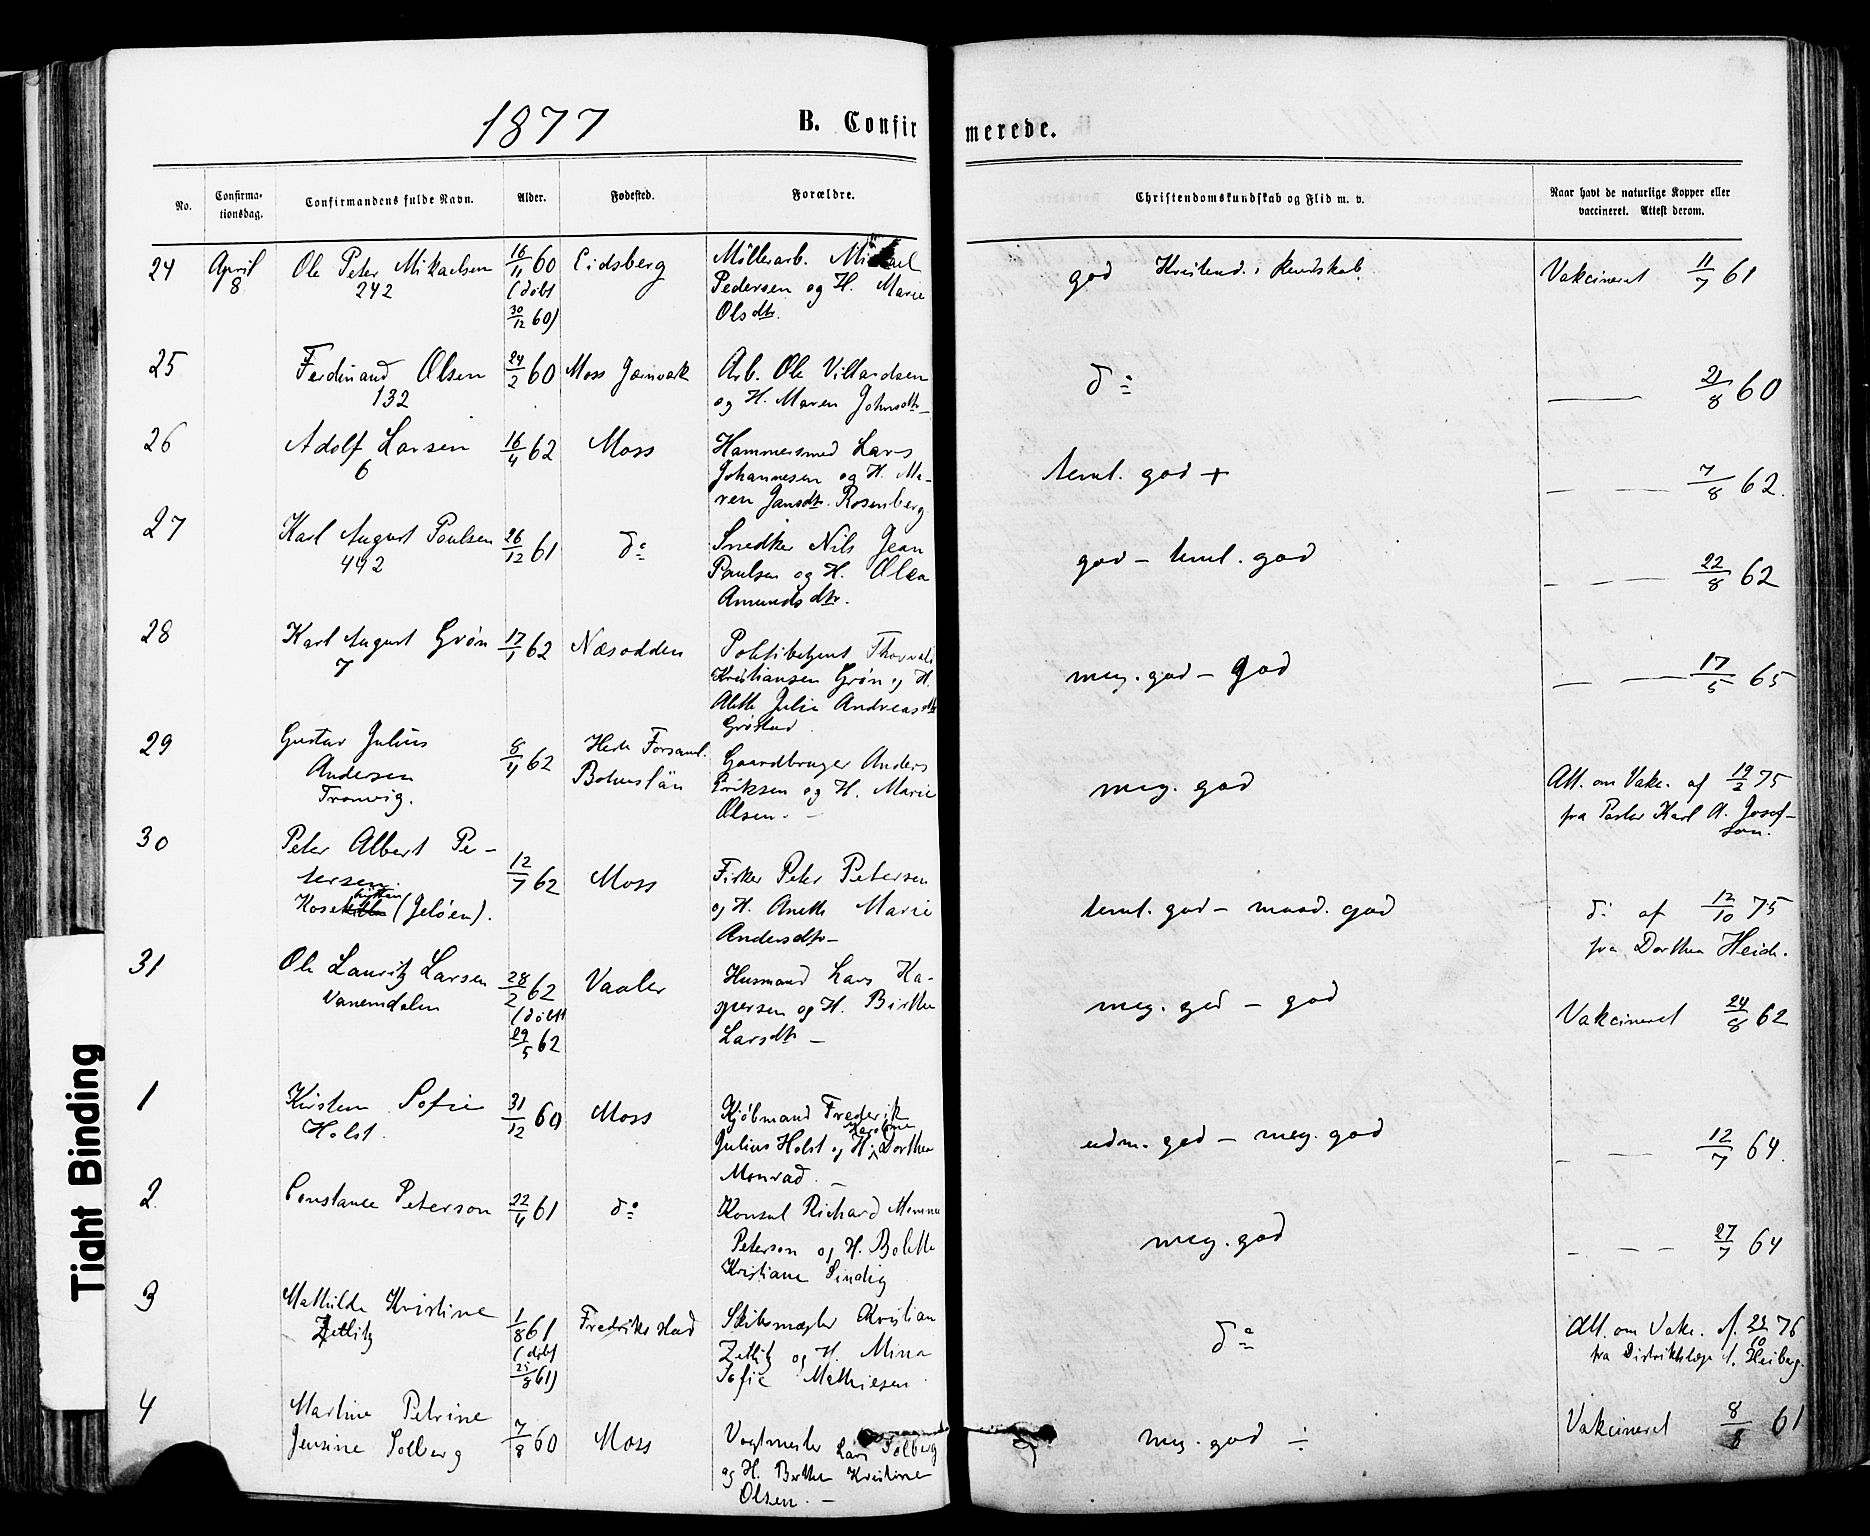 1877
B. Confirmerede.
No. Confirmationsdag. Confirmandens fulde Navn. Alder. Fødested. Forældre. Christendomskundskab og Flid m. v. Naar havt de naturlige Kopper eller vaccineret. Attest derom.
24 April 8 Ole Peter Mikaelsen 242 16/11 60 (døbt 30/12 60) Eidsberg Møllerarb. Mikael Pedersen og H. Marie Olsdtr. god Kristend.s kundskab. Vakcineret 11/7 61
25 Ferdinand Olsen 132 24/2 60 Moss Jernverk Arb. Ole Villardsen og H. Maren Johnsdtr. do — 21/8 60
26 Adolf Larsen 6 16/4 62 Moss Hammersmed Lars Johannesen og H. Maren Jansdtr. Rosenberg teml. god + — — 7/8 62.
27 Karl August Paulsen 442 26/12 61 do Snedker Nils Jean Paulsen og H. Olea Amundsdtr. god – teml. god — — — 22/8 62
28 Karl August Grøn 7 17/1 62 Næsodden Politibetjent Thorvald Kristiansen Grøn og H. Alette Julie Andreasdtr Grøstad meg. god – god — — 17/5 65
29 Gustav Julius Andersen Tronvig. 8/4 62 Hede Forsaml. Bohuslän Gaardbruger Anders Eriksen og H. Marie Olsen. – meg. god Att. om Vakc. af 19/2 75 fra Pastor Karl A. Josefson.
30 Peter Albert Petersen. (Jeløen). 12/7 62 Moss Fisker Peter Petersen og H. Anette Marie Andersdtr – teml. god – maad. god do af 12/10 75 fra Dorthea Heide.
31 Ole Lauritz Larsen Vanemdalen 28/2 62 (døbt 29/5 62 Vaaler Husmand Lars Kaspersen og H. Birthe Larsdtr – meg. god – god Vakcineret 24/8 62
1 Kirsten Sofie Holst. 31/12 60 Moss Kjøbmand Frederik Julius Holst og H. Karoline Dorthea Monrad. – udm. god – meg. god — — 12/7 64.
2. Constance Peterson 22/4 61 do Konsul Richard Momme Peterson og H. Bolette Kristiane Sindig meg. god — — — 27/7 64
3 Mathilde Kristine Zetlitz 1/8 61 (døbt 25/8 61) Fredrikstad Skibsmægler Kristian Zetlitz og H. Mina Sofie Mathiesen. do Att. om Vakc. af 23/10 76 fra Distriktslæge A. Heiberg.
4 Martine Petrine Jensine Solberg 7/8 60 Moss Vagtmester Lars Solberg og H. Berthe Kristine Olsen. – meg. god ÷ Vakcineret 8/8 61
Tight Binding